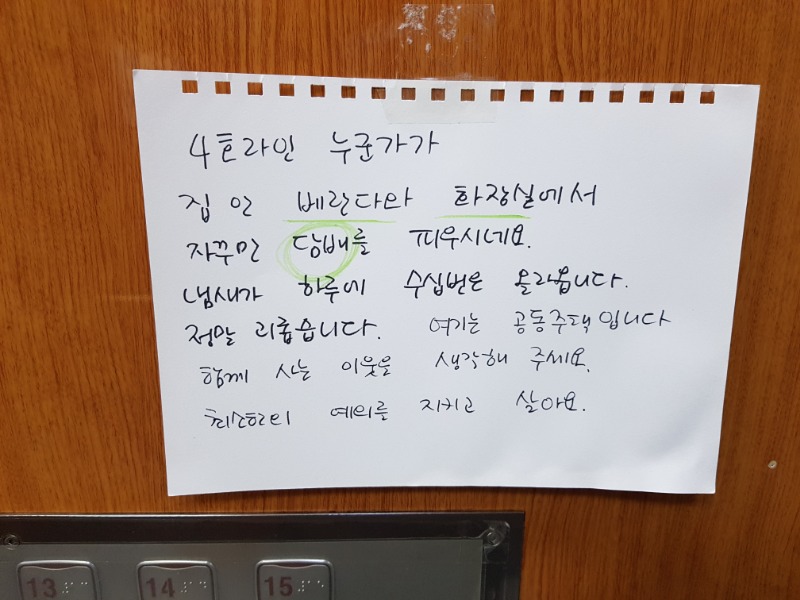 4호라인 누군가가
집 안 베란다와 화장실에서
자꾸만 담배를 피우시네요.
냄새가 하루에 수십번은 올라옵니다.
정말 괴롭습니다. 여기는 공동주택입니다
함께 사는 이웃을 생각해 주세요.
최소한의 예의를 지키고 살아요.
13 14 15